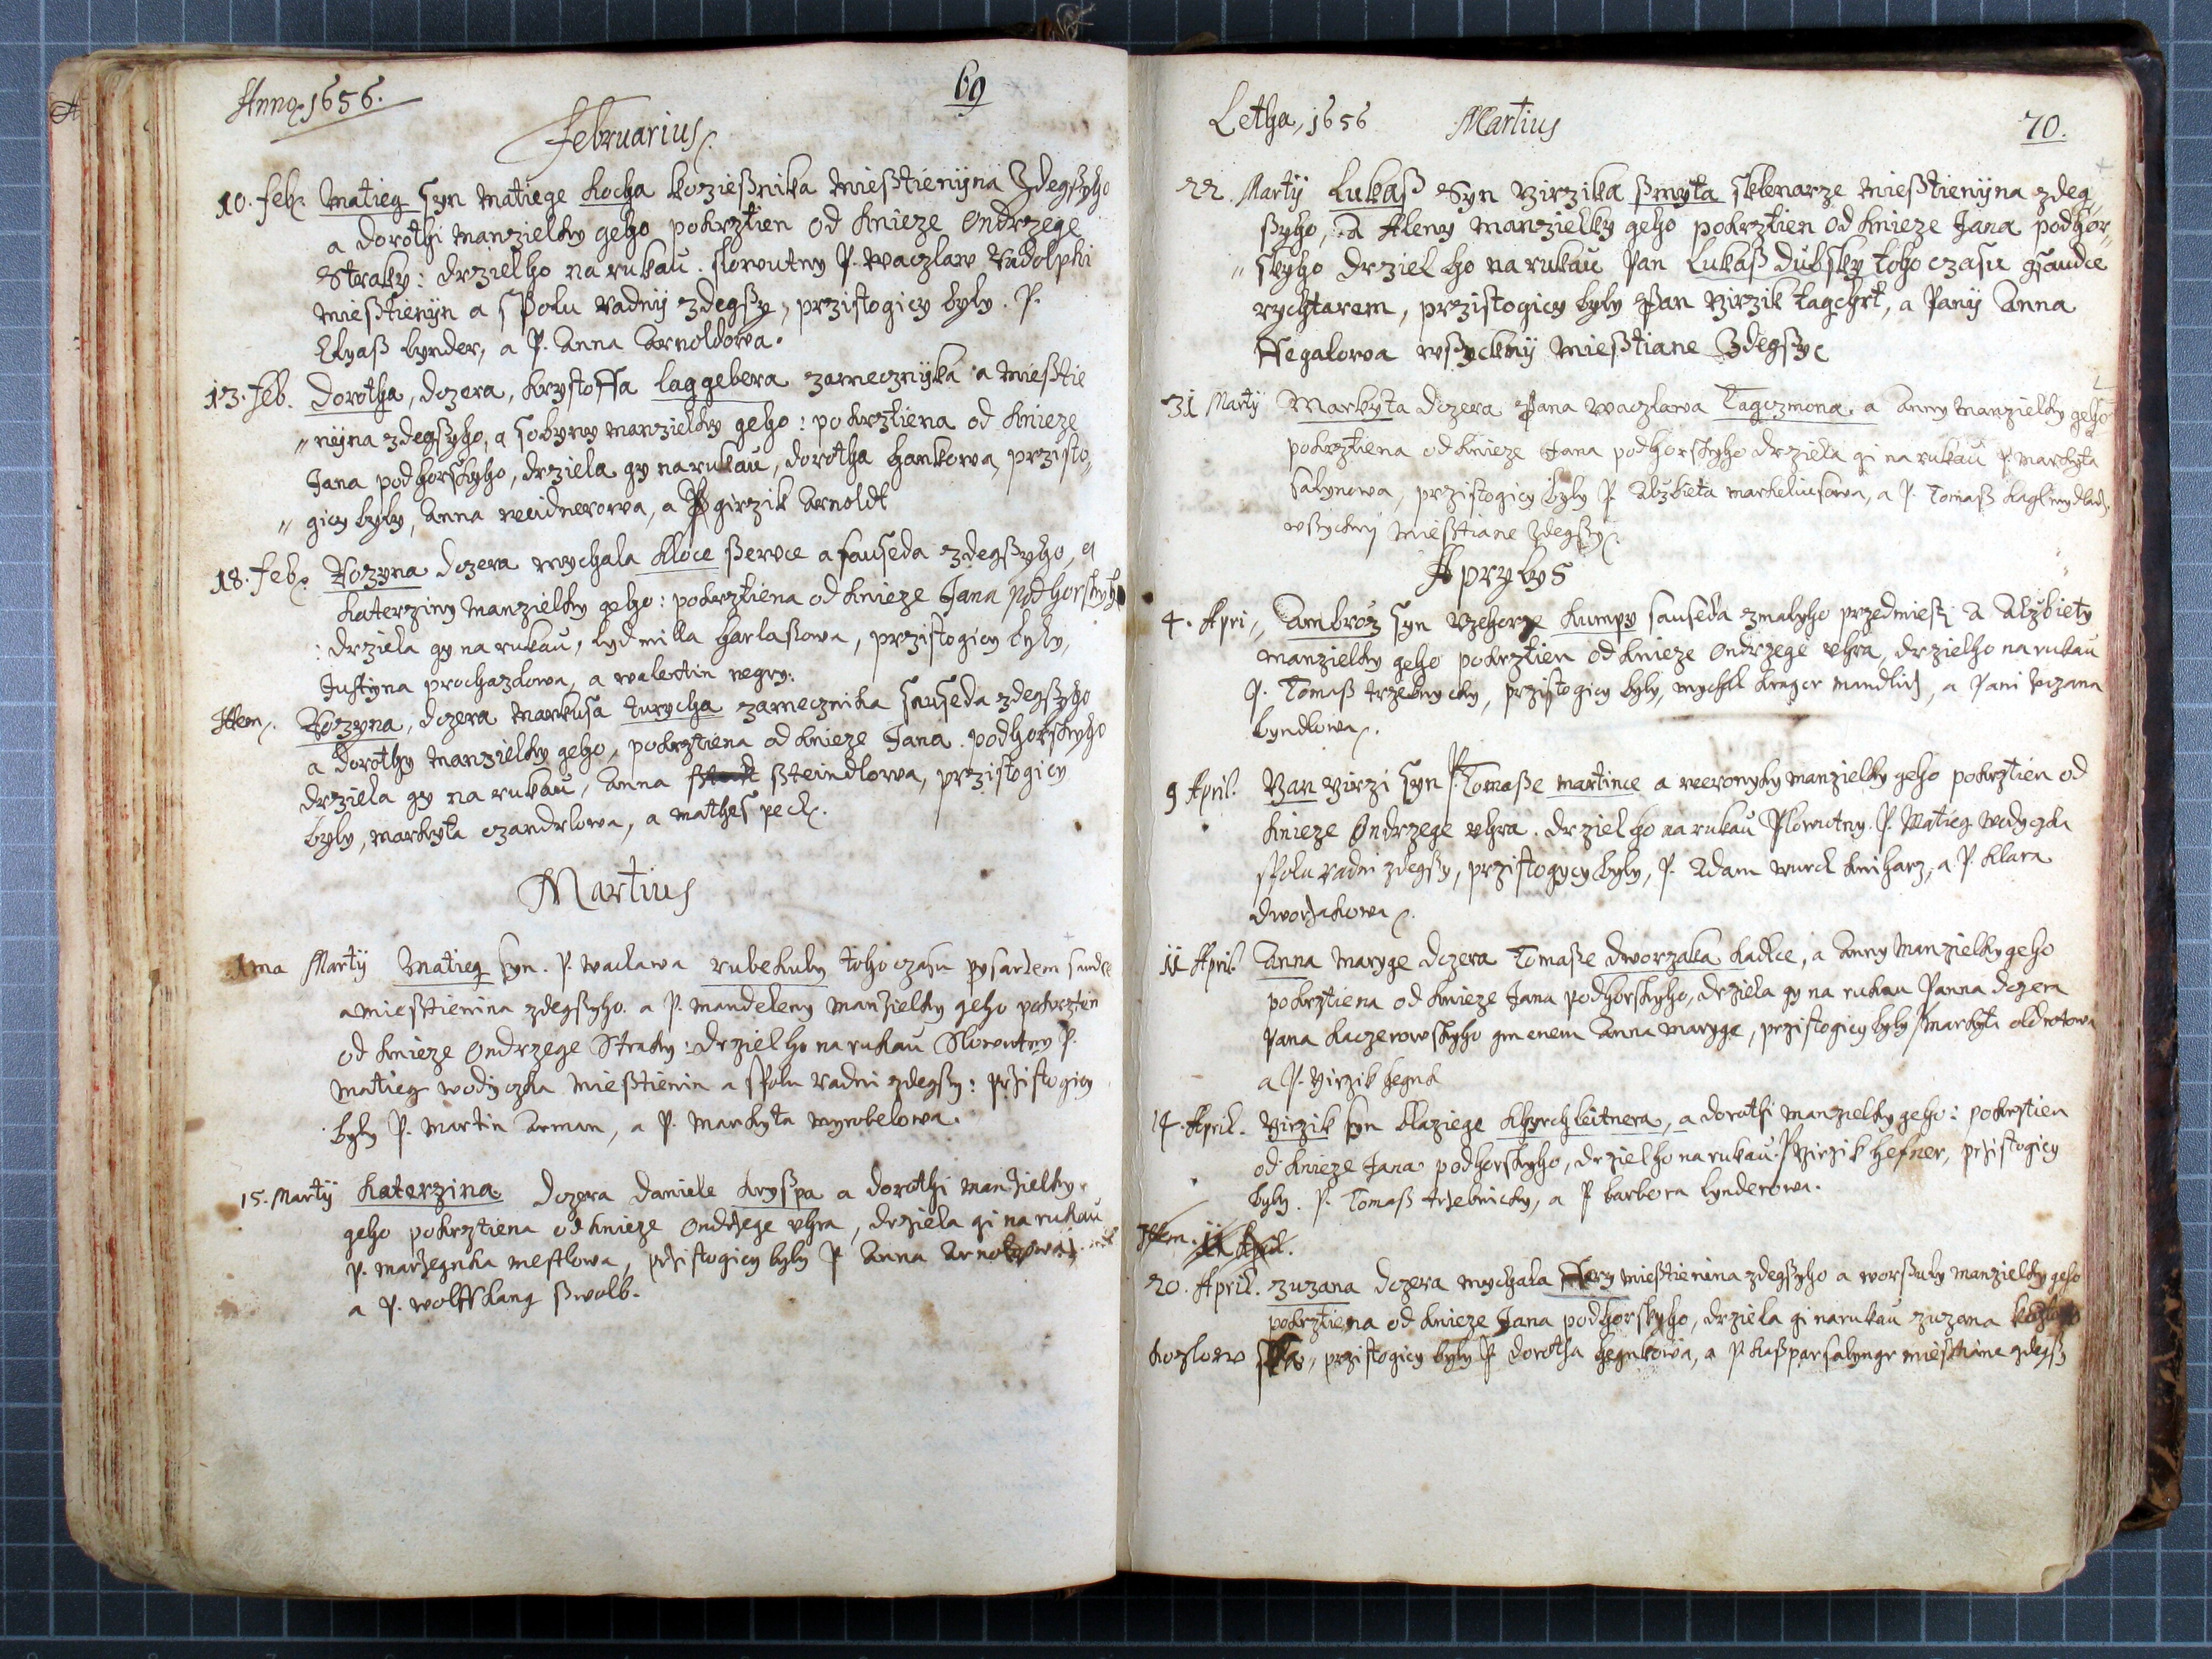 Anno, 1656.
69
Februarius
10. feb. Matieg syn Matiege Kocha kozießnika Mießtienijna Zdegßyho
a dorothi Manzielky geho pokrztien od knieze Ondrzege
Straky: drzielho na rukau. slowutny P. Waczlaw Rudolphi
Mießtienijn a spolu radnij zdegßy, przistogicy byly. P.
Elyaß lynder, a P. Anna Arnoldowa.
13. feb. Dorotha, dczera, krystoffa laggebera zamecznijka a Mießtie
nijna zdegßyho, a sobyny manzielky geho: pokrztiena od knieze
Jana podhorskyho, drziela gy na rukau, dorotha hankowa, przisto„
„ gicy byly, Anna weidnerowa, a P girzik Arnoldt
18. feb. Rozyna dczera mychala kloce ßewce a sauseda zdegßyho, a
katerziny Manzielky geho: pokrztiena od knieze Jana podhorskyho
: drziela gy na rukau, lydmilla harlaßowa, przistogicy byly,
Justyna prochazkowa, a walentin negry.
Item. Rozyna, dczera Markusa turycha zamecznika sauseda zdegßyho
a dorothy Manzielky geho, pokrztiena od knieze Jana podhorskyho
drziela gy na rukau, Anna ßteindlowa, przistogicy
byly, markyta czandrlowa, a mathes peck.
Martius
1ma Martij Matieg syn. P. waclawa rubekuly toho czasu pysarzem saudce
a mießtienina zdegßyho. a P. mandeleny manzielky geho pokrztien
od knieze Ondrzege Straky: drziel ho na rukau Slowutny P.
Matieg wodiczka Mießtienin a spolu radni zdegßy: przistogicy
byly P. Martin Arman, a P. Markyta wyrobelowa.
15. Martij Katerzina dczera Daniele kryßpa a dorothi manzielky
geho pokrztiena od knieze Ondrzege uhra, drziela gi na rukau
P. marzegnka mestlowa, przistogicy byly P Anna
a P. wolffkang ßwolb.
Letha, 1656 Martius
70.
22. Martij Lukaß Syn Yirzika ßmyta sklenarze Mießtienijna zdeg„
ßyho, a Aleny manzielky geho pokrztien od knieze Jana podhor„
„ skyho drziel ho na rukau Pan Lukaß Dubsky toho czasu saudce
rychtarem, przistogicy byly Pan Yirzik tagchrt, a Panij Anna
ffegalowa wßycknij Mießtiane Zdegßy
31 Martij Markyta dczera Pana waczlawa Tagczmona. a Anny Manzielky geho
pokrztiena od knieze Jana podhorskyho drziela gi na rukau P. markyta
salynowa, przistogicy byly P. Alzbieta markeliusowa, a P. Tomaß
wßyckni Mießtiane Zdegßy.
Aprylys
4. Apri„ Ambroz syn Rzehorze kumpy sauseda zmalyho przedmiesti a Alzbiety
manzielky geho pokrztien od knieze Ondrzege uhra, drzielho na rukau
P. Tomaß trzebnycky, przistogicy byly, mychl kruger mandlirz, a Pani
lyndlowa.
9 April. Yan Yirzi syn P. Tomaße martince a weronyky manzielky geho pokrztien od
knieze Ondrzege uhra. drziel ho na rukau Slowutny. P. Matieg Wodyczka
spolu radni zdegßy, przistogycy byly, P. Adam wurcl kniharz, a P. klara
dworzakowa.
11 April. Anna Maryge dczera Tomaße dworzaka kadlce, a Anny Manzielky geho
pokrztiena od knieze Jana podhorskyho, drziela gy na rukau Panna dczera
Pana kaczerowskyho gmenem Anna Maryge, przistogicy byly P markyta oldrotowa
a P. Yirzik hegnk
14. April. Yirzik syn blaziege khyrchleitnera, a dorothi manzielky geho: pokrztien
od knieze Jana podhorskyho, drziel ho na rukau. P Yirzik hefner, przistogicy
byly. P. Tomaß trzebnicky, a P barbora lynderowa.
Item. 14 April.
20. April. zuzana dczera mychala ffery mießtienina zdegßyho a worßuly manzielky geho
pokrztiena od knieze Jana podhorskyho, drziela gi na rukau zuzana
kozlow ska, przistogicy byly P dorotha hegnkowa, a P. kaßpar salyngr mießtiane zdegßy